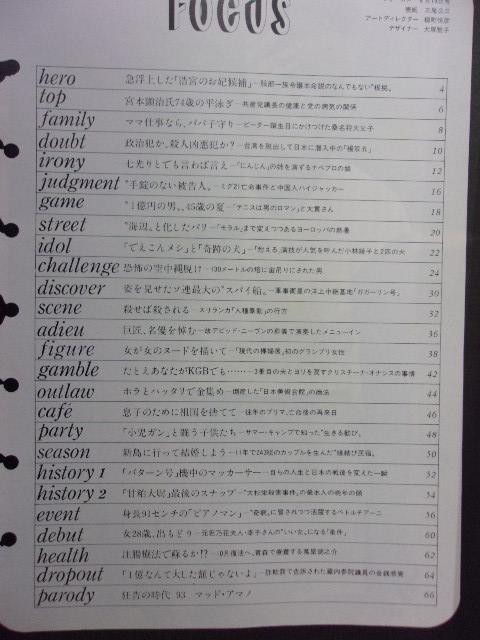 FOCUS
表紙 三尾公三
アートディレクター
デザイナー
hero 急浮上した「浩宮のお妃候補」 4
top 宮本顕治氏74歳の平泳ぎ―共産党議長の健康と党の病気の関係 6
family ママ仕事なら、パパ子守り―ピーター誕生日にかけつけた桑名将大父子 8
doubt 政治犯か、殺人凶悪犯か?―台湾を脱出して日本に潜入中の「楊双五」 10
irony 七光りとでも言わば言え―「にんじん」の姉を演ずるナベプロの娘 12
judgment “手錠のない被告人。―ミグ21亡命事件と中国人ハイジャッカー 16
game “1億円の男、45歳の夏―「テニスは男のロマン」と大賞さん 18
street “海辺。と化したパリ―「モラル」まで変えつつあるヨーロッパの熱暑 20
idol 「でえこんメシ」と「奇跡の犬」 22
challenge 恐怖の空中縄脱け―130メートルの塔に宙吊りにされた男 24
discover 姿を見せたソ連最大の“スパイ船。―軍事衛星の洋上中継基地「ガガーリン号」 30
scene 殺せば殺される―スリランカ「人種暴動」の行方 32
adieu 巨匠、名優を悼む―故デビッド・ニーブンの葬儀で演奏したメニューイン 36
figure 女が女のヌードを描いて―「現代の裸婦展」初のグランプリ女性 38
gamble たとえあなたがKGBでも……―3番目の夫とヨリを戻すクリスチーナ・オナシスの事情 42
outlaw ホラとハッタリで金集め―倒産した「日本美術会館」の商法 44
café 息子のために祖国を捨てて―往年のプリマ、亡命後の再来日 46
party 「小児ガン」と闘う子供たち―サマー・キャンプで知った“生きる歓び。 48
season 新島に行って結婚しよう―11年で243組のカップルを生んだ“縁結び民宿。 50
history 1 「バターン号」機中のマッカーサー―自らの人生と日本の戦後を変えた一瞬 52
history 2 「甘粕大尉」最後のスナップ―“大杉栄殺害事件。の張本人の晩年の顔 54
event 身長91センチの「ピアノマン」―“奇病。に冒されつつ活躍するペトルチアーニ 56
debut 女28歳、出もどり―元若乃花夫人・幸子さんの“いい女。になる「条件」 60
health 注腸療法で蘇るか!?―10月復活へ、青森で療養する萬屋錦之介 62
dropout 「1億なんて大した額じゃないよ」―詐欺罪で告訴された蔵内参院議員の金銭感覚 64
parody 狂告の時代 93 マッド・アマノ 66